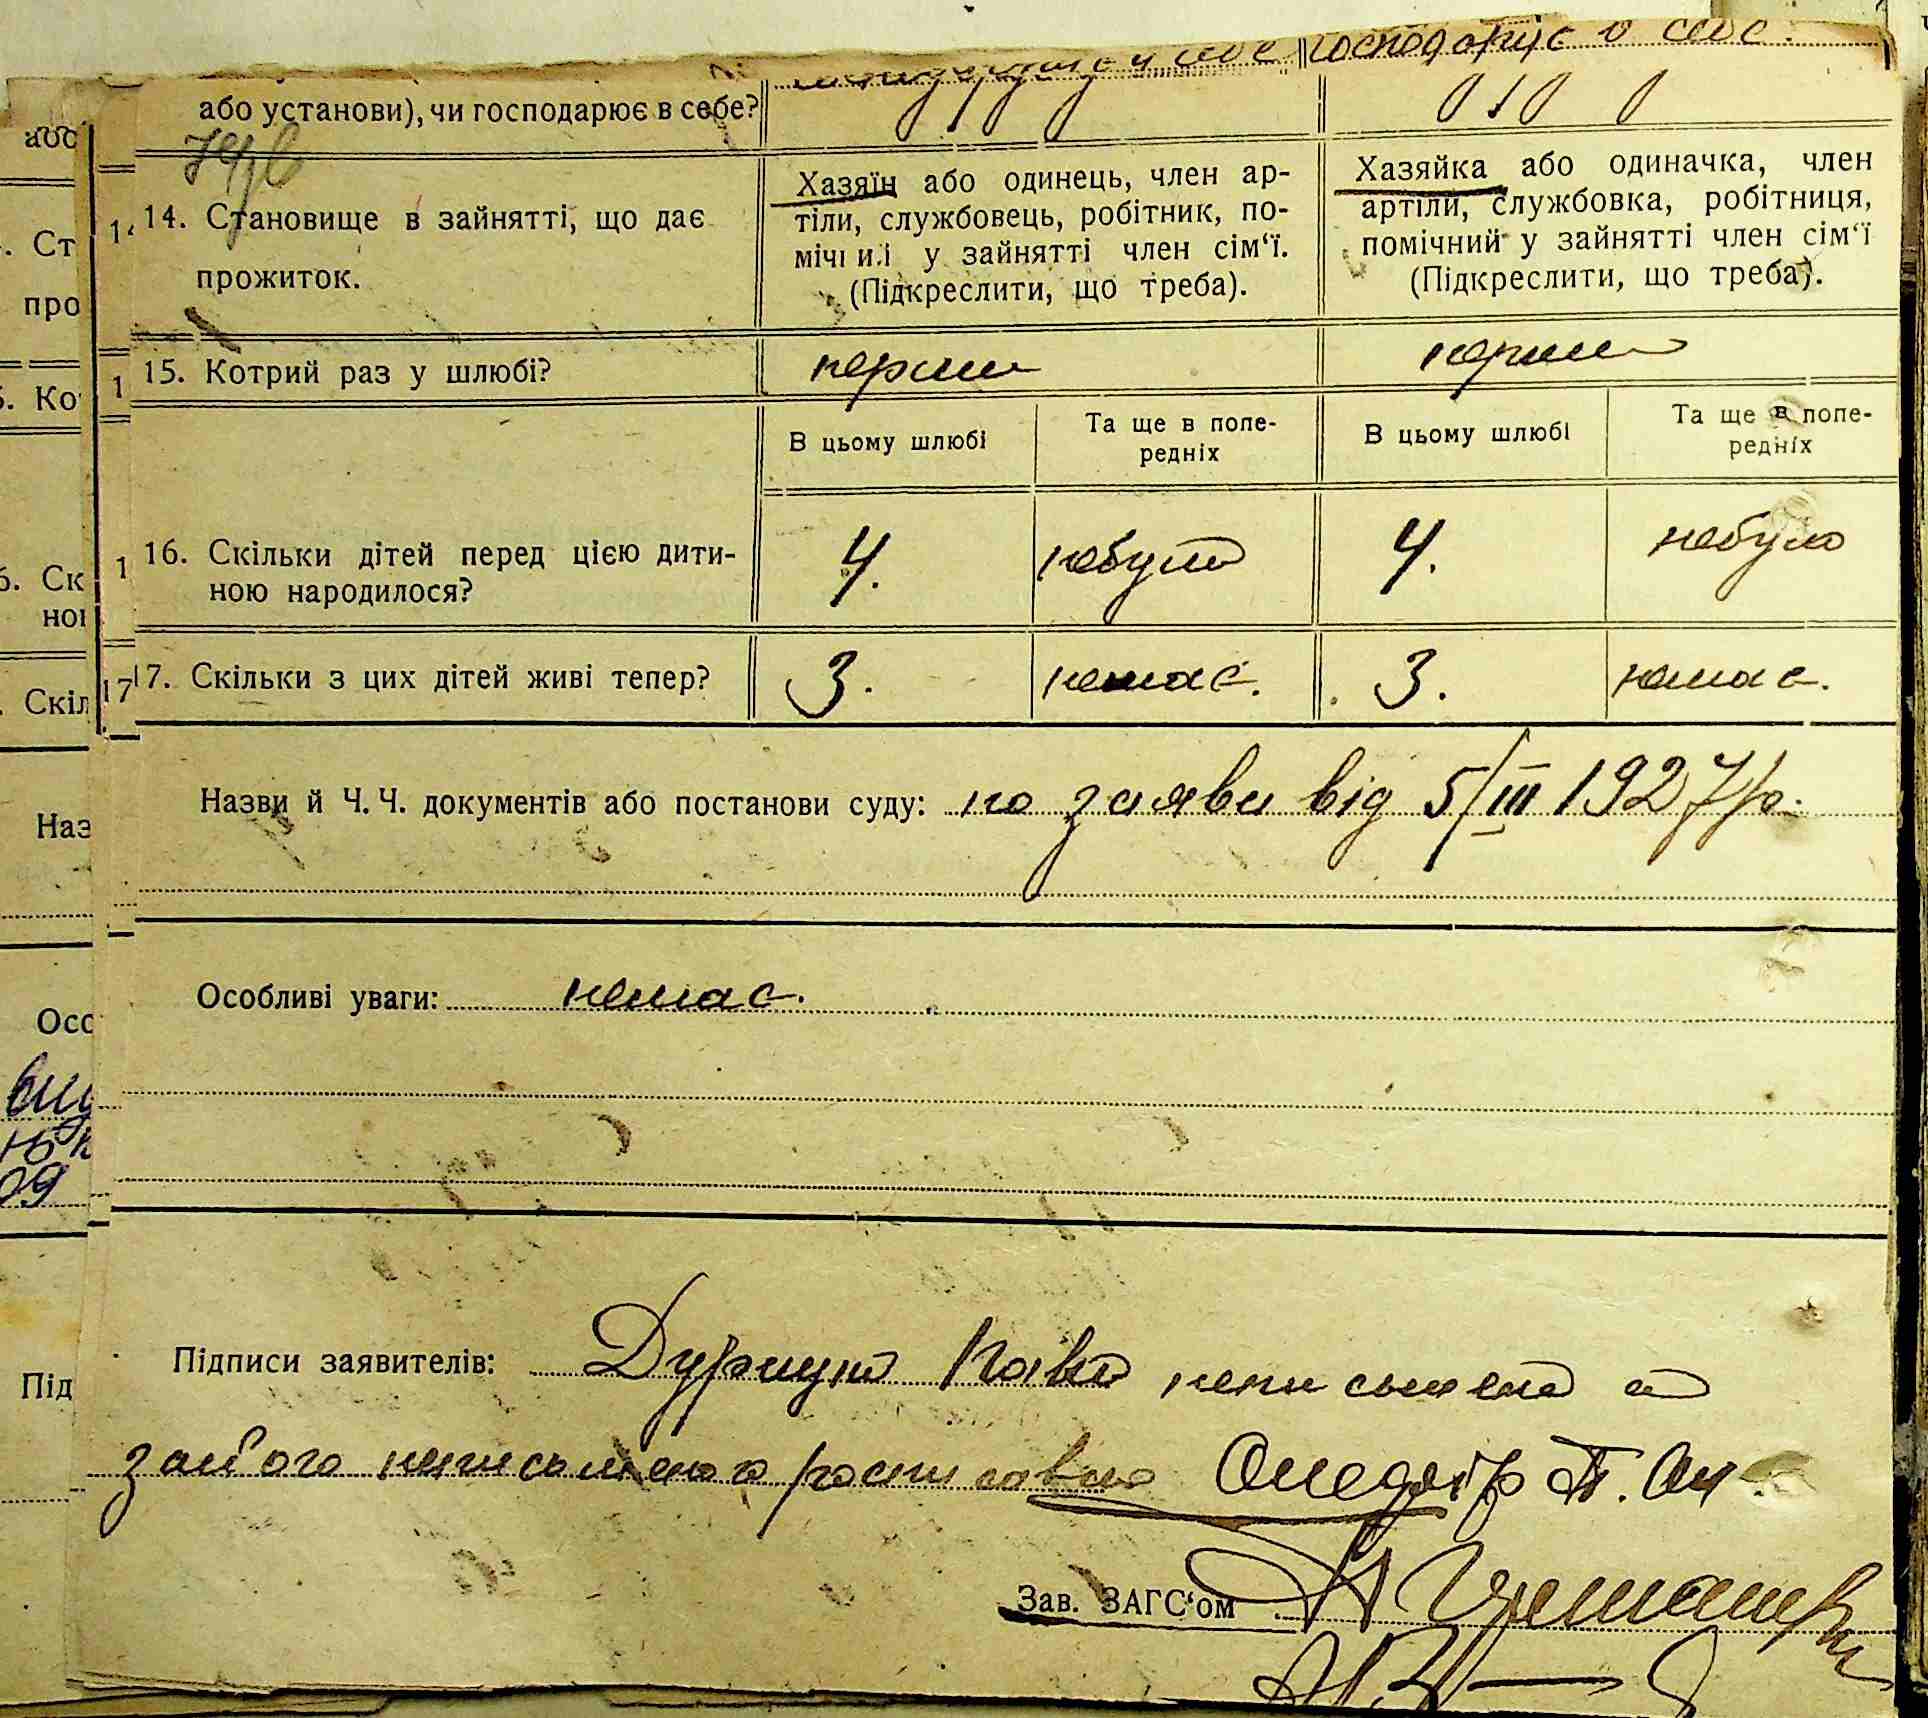 господарює в себе.
або установи), чи господарює в себе?
14. Становище в зайнятті, що дає
прожиток.
Хазяїн або одинець, член ар-
тіли, службовець, робітник, по-
у зайнятті член сім‘ї.
(Підкреслити, що треба).
Хазяйка або одиначка, член
артіли, службовка, робітниця,
помічний у зайнятті член сім‘ї
(Підкреслити, що треба).
15. Котрий раз у шлюбі?
перший
перший
В цьому шлюбі
Та ще в попе-
редніх
В цьому шлюбі
Та ще в попе-
редніх
16. Скільки дітей перед цією дити-
ною народилося?
4.
небуло
4.
небуло
17. Скільки з цих дітей живі тепер?
3.
немає.
3.
немає.
Назви й Ч. Ч. документів або постанови суду: по заяви від 5/III 1927 р.
Особливі уваги: немає.
Підписи заявителів: неписьмена а
за його неписьменого росписався
Зав. ЗАГС‘ом